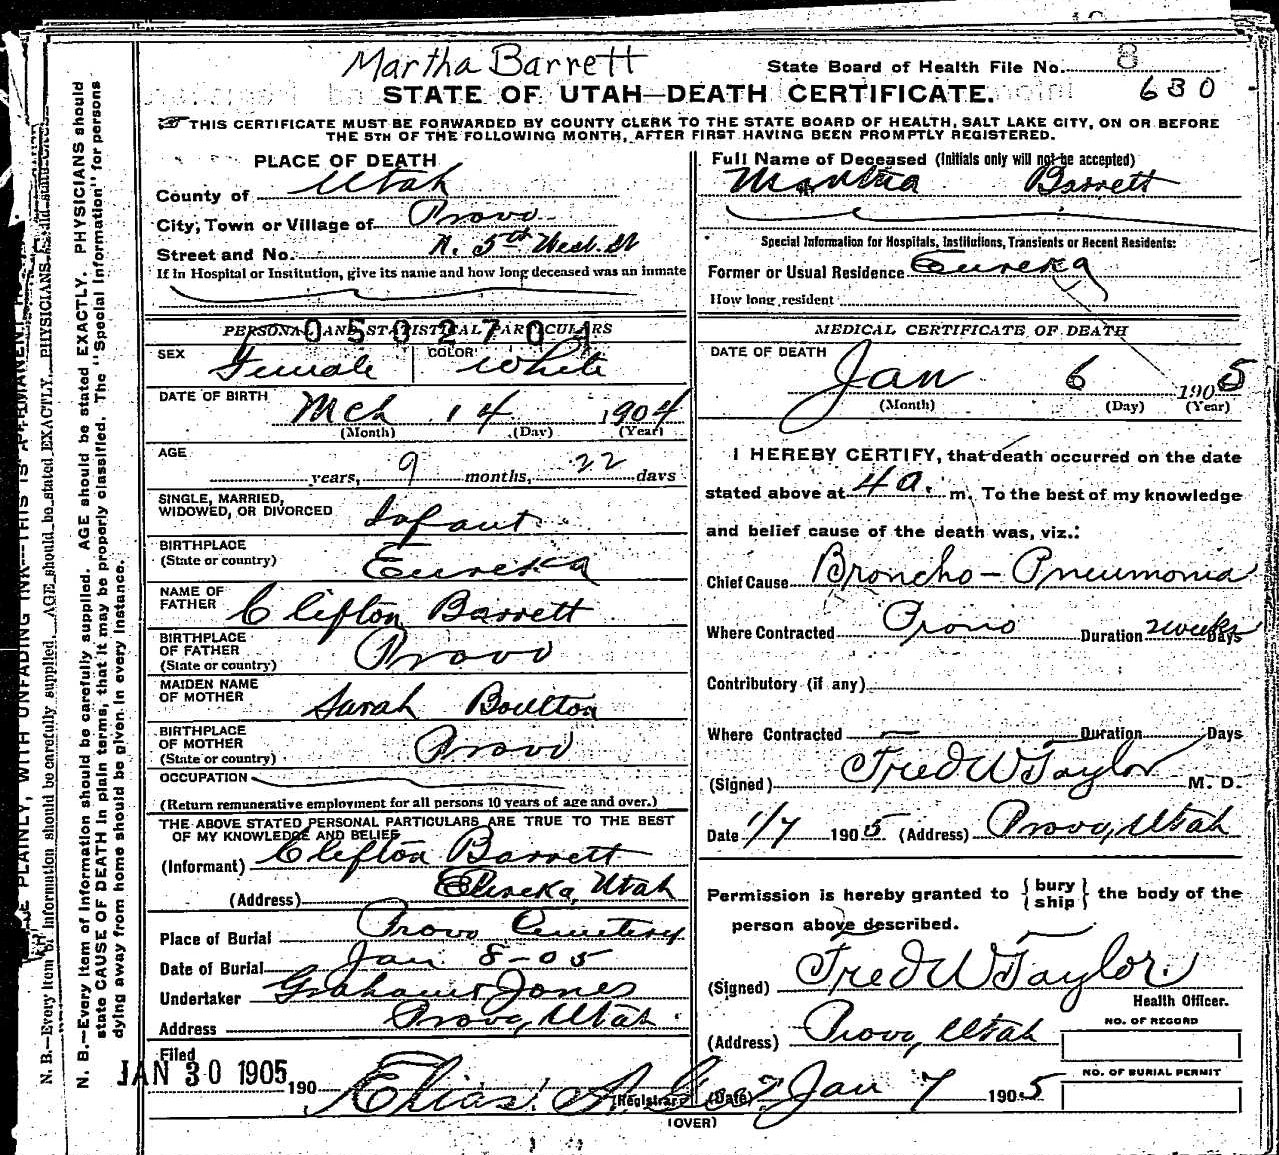 Martha Barrett
State Board of Health File No. 8
630
STATE OF UTAH—DEATH CERTIFICATE.
THIS CERTIFICATE MUST BE FORWARDED BY COUNTY CLERK TO THE STATE BOARD OF HEALTH, SALT LAKE CITY, ON OR BEFORE
THE 5TH OF THE FOLLOWING MONTH, AFTER FIRST HAVING BEEN PROMPTLY REGISTERED.
PLACE OF DEATH
County of Utah
City, Town or Village of Provo
Street and No. N. 5th West. St
If in Hospital or Institution, give its name and how long deceased was an inmate
PERSONAL AND STATISTICAL PARTICULARS
0502704
SEX Female COLOR White
DATE OF BIRTH Mch 14 1904
(Month) (Day) (Year)
AGE
years, 9 months, 22 days
SINGLE, MARRIED,
WIDOWED, OR DIVORCED Infant
BIRTHPLACE
(State or country) Eureka
NAME OF
FATHER Clifton Barrett
BIRTHPLACE
OF FATHER
(State or country) Provo
MAIDEN NAME
OF MOTHER Sarah Boulton
BIRTHPLACE
OF MOTHER
(State or country) Provo
OCCUPATION
(Return remunerative employment for all persons 10 years of age and over.)
THE ABOVE STATED PERSONAL PARTICULARS ARE TRUE TO THE BEST
OF MY KNOWLEDGE AND BELIEF
(Informant) Clifton Barrett
(Address) Eureka, Utah
Place of Burial Provo Cemetery
Date of Burial Jan 8-05
Undertaker Graham & Jones
Address Provo, Utah
Filed
JAN 30 1905 190 Elias A.
(Registrar)
(OVER)
Full Name of Deceased (Initials only will not be accepted)
Martha Barrett
Special Information for Hospitals, Institutions, Transients or Recent Residents:
Former or Usual Residence Eureka
How long resident
MEDICAL CERTIFICATE OF DEATH
DATE OF DEATH
Jan 6 1905
(Month) (Day) (Year)
I HEREBY CERTIFY, that death occurred on the date
stated above at 4 a. m. To the best of my knowledge
and belief cause of the death was, viz.:
Chief Cause Broncho-Pneumonia
Where Contracted Provo Duration 2 weeks Days
Contributory (if any)
Where Contracted Duration Days
(Signed) Fred W Taylor M. D.
Date 1/7 1905 (Address) Provo, Utah
Permission is hereby granted to { bury ship } the body of the
person above described.
(Signed) Fred W Taylor
Health Officer.
(Address) Provo, Utah
NO. OF RECORD
NO. OF BURIAL PERMIT
(Date) Jan 7 1905
N. B.—Every item of information should be carefully supplied. AGE should be stated EXACTLY. PHYSICIANS should
state CAUSE OF DEATH in plain terms, that it may be properly classified. The "Special Information" for persons
dying away from home should be given in every instance.
N. B.—Every item of information should be carefully supplied. AGE should be stated EXACTLY. PHYSICIANS should state
PLAINLY, WITH UNFADING INK—THIS IS A PERMANENT